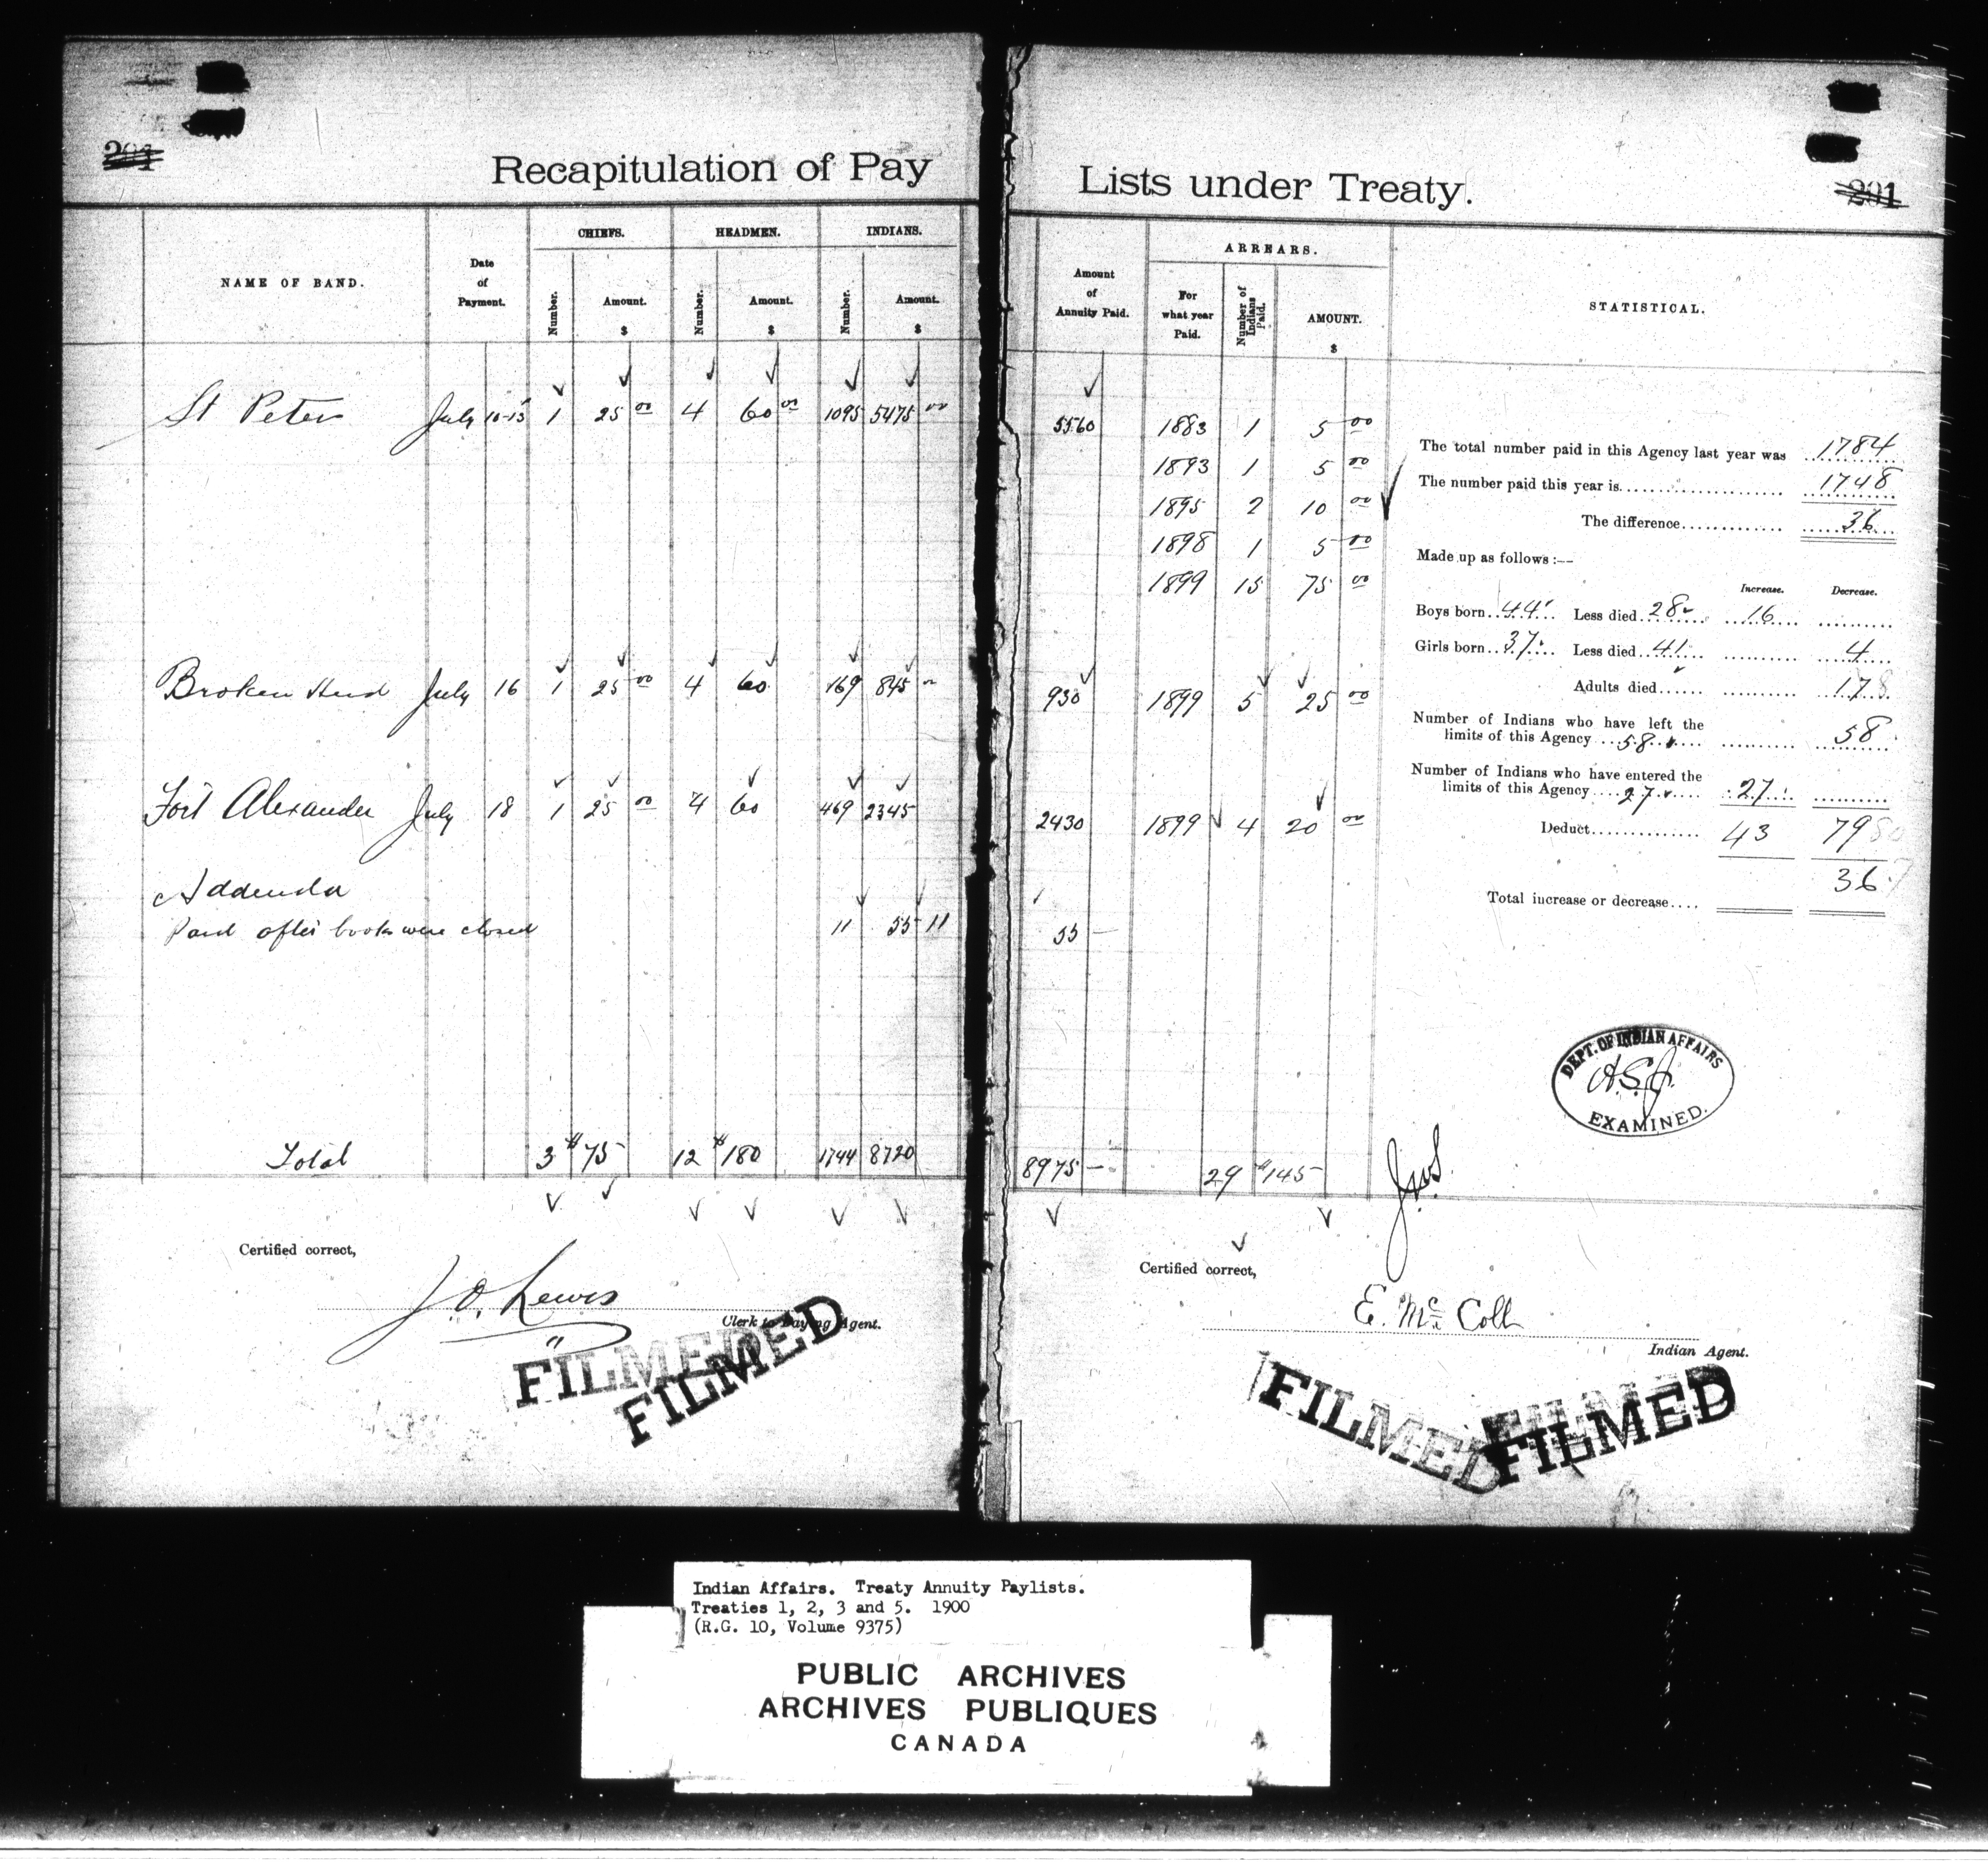 Recapitulation of Pay Lists under Treaty.
201
NAME OF BAND.
Date of Payment.
CHIEFS.
Number.
Amount. $
HEADMEN.
Number.
Amount. $
INDIANS.
Number.
Amount. $
St Peters July 10-13 1 25 00 4 60 00 1095 5475 00
Broken Head July 16 1 25 00 4 60 169 845
Fort Alexander July 18 1 25 00 4 60 469 2345
Addenda
Paid after books were closed 11 55 11
Total 3 $75 12 $180 1744 8720
Certified correct,
J. O. Lewis
Clerk to Paying Agent.
FILMED
FILMED
201
Amount of Annuity Paid.
ARREARS.
For what year Paid.
Number of Indians Paid.
AMOUNT. $
STATISTICAL.
5560 1883 1 5 00
1893 1 5 00
1895 2 10 00
1898 1 5 00
1899 15 75 00
930 1899 5 25 00
2430 1899 4 20 00
55 —
8975 — 29 $145
The total number paid in this Agency last year was 1784
The number paid this year is 1748
The difference 36
Made up as follows :—
Increase. Decrease.
Boys born 44 Less died 28 16
Girls born 37 Less died 41 4
Adults died 17
Number of Indians who have left the
limits of this Agency 58 58
Number of Indians who have entered the
limits of this Agency 27 27
Deduct 43 79
36
Total increase or decrease
DEPT. OF INDIAN AFFAIRS
A.S.J.
EXAMINED.
Certified correct,
E. McColl
Indian Agent.
FILMED
FILMED
FILMED
Indian Affairs. Treaty Annuity Paylists.
Treaties 1, 2, 3 and 5. 1900
(R.G. 10, Volume 9375)
PUBLIC ARCHIVES
ARCHIVES PUBLIQUES
CANADA